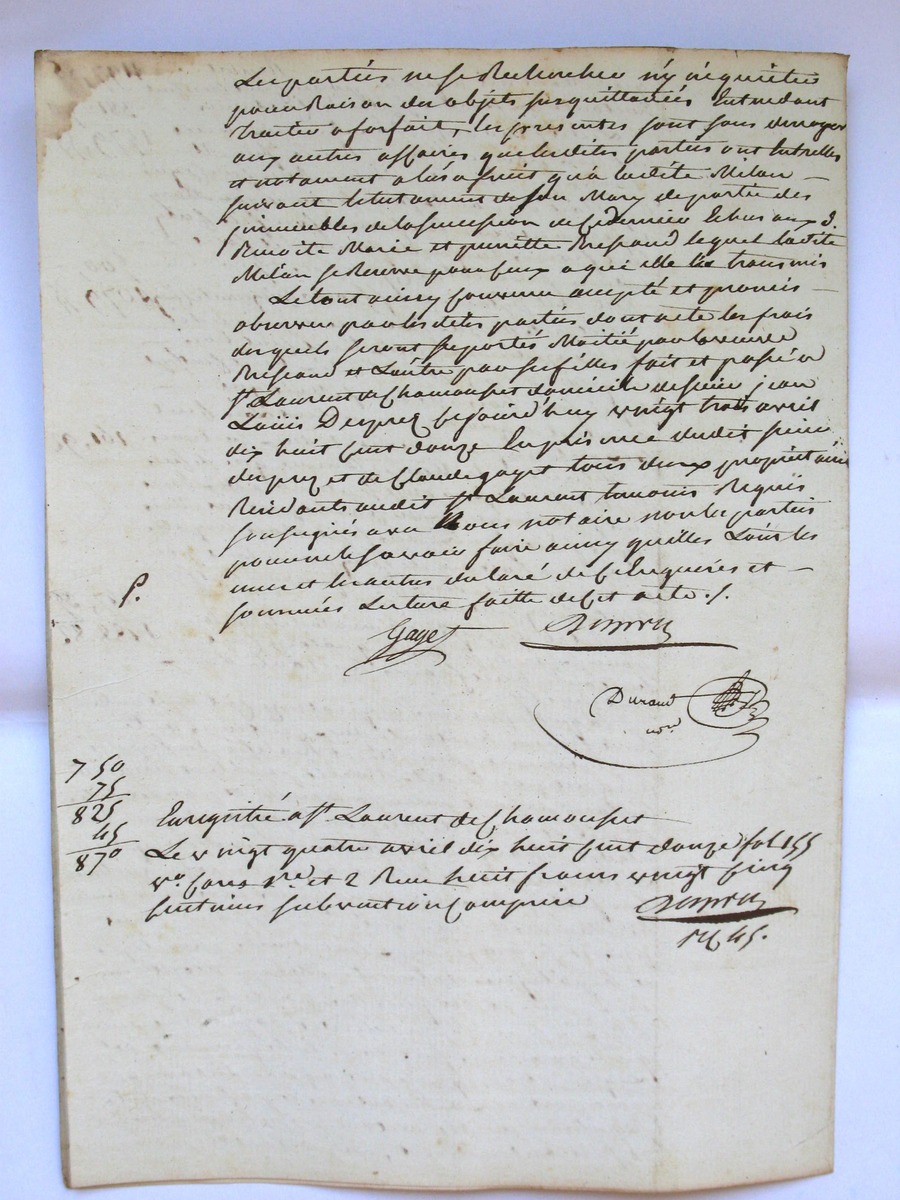 Les parties ne se Rechercher n'y inquieter
pour Raison des objets sus quittancés Entendant
traiter a forfait, les presentes sont sans deroger
aux autres affaires que lesdites parties ont Entrelles
et notament a l'usufruit qu'a ladite Milan —
suivant le testament de son Mary de partie des
immeubles de la succession de ce dernier Echus aux d.
Benoite Marie et pierrette Bresand lequel ladite
Milan se Reserve pour ceux a qui elle l'a transmis
Le tout ainsy convenu accepté et promis —
observer par les dites parties dont acte les frais
desquels seront suportés Moitié par la veuve
et L'autre par ses filles fait et passé a
St. Laurent de Chamousset domicile de sieur jean
Louis Duprez ce jourd'huy vingt trois avril
dix huit cent douze En presence dudit sieur
duprez et de Claude gayet tous deux proprietaires
Residants audit St. Laurent temoins Requis
soussignés avec Nous notaire non les parties
pour ne le savoir faire ainsy qu'elles L'ont les
unes et les autres declaré de ce Enquises et —
sommées Lecture faitte de cet acte ./.
P.
Gayet
Duprez
Durand
nore
7 50
75
825
45
870
Enregistré a St. Laurent de Chamousset
Le vingt quatre avril dix huit cent douze fol. 155
vo. Cases 1re. et 2 Reçu huit francs vingt Cinq
centimes subvention Comprise
Duprez
45.